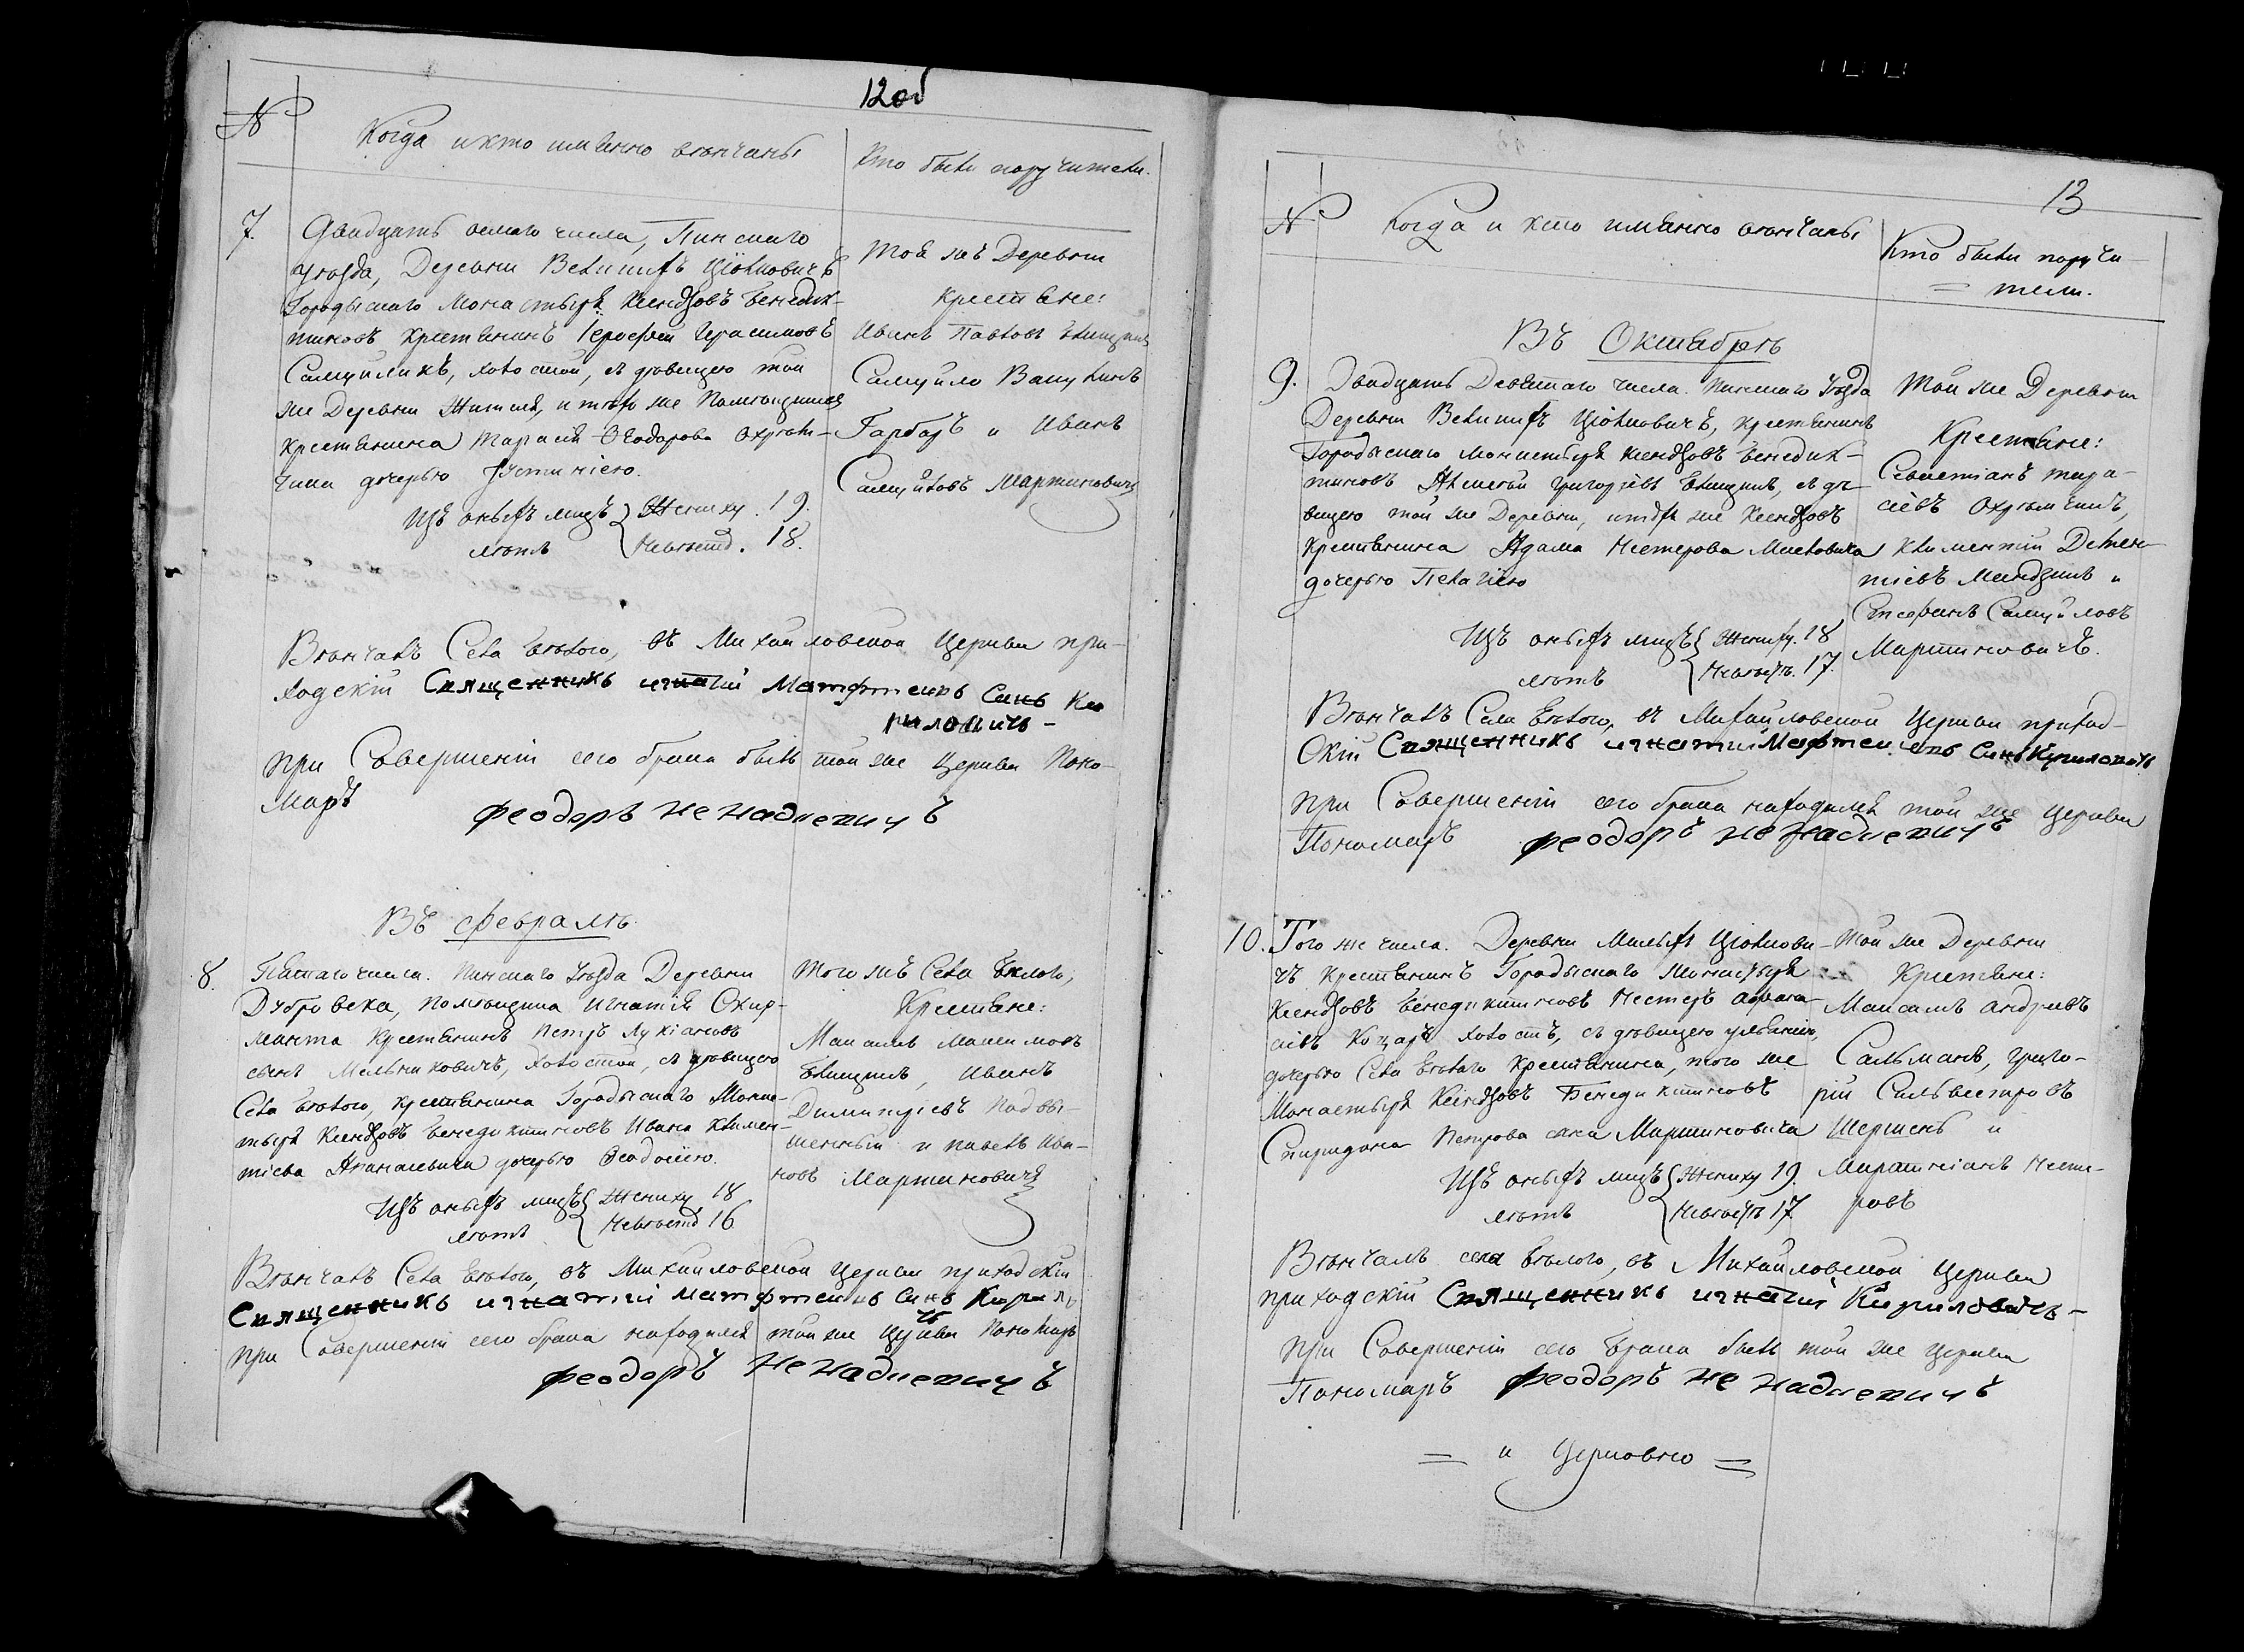 12об
№
Когда и кто имянно венчаны
Кто были поручители.
7.
Двадцать осмаго числа, Пинскаго
уезда, Деревни Великихъ Ціолковичъ
Городыскаго Монастыря Ксендзовъ Бенедик-
тиновъ крестянинъ Іерофей Герасимовъ
Самуиликъ, холостой, съ девицею той
же Деревни жителя, и того же Помещика
крестянина Тарасія Феодорова Охрим-
чика дочерью Іустиніею.
Изъ оныхъ лицъ Жениху . 19.
летъ Невесте . 18.
Той же Деревни
Крестяне:
Иванъ Павловъ Клищикъ
Самуило Вакулинъ
Гарбаръ и Иванъ
Самуйловъ Мартиновичъ
Венчалъ Села Белого, въ Михайловской Церкви при-
ходскій Священникъ игнатій Матфтеивъ Синъ Ки
риловичъ -
При Совершеніи сего брака былъ той же Церкви Поно-
марь
феодоръ Ненадкевичъ
Въ Февралъ
8.
Пятаго числа. Пинскаго Уезда Деревни
Дубровска, Помещика Игнатія Скир-
манта Крестянинъ Петръ Лукіановъ
сынъ Мельниковичъ, холостой, съ девицею
Села Белого, крестянина Городыскаго Мона-
тыря Ксендзовъ Бенедиктиновъ Ивана Климен-
тіева Ананасевича дочерью Феодосіею.
Изъ оныхъ лицъ Жениху 18
летъ Невесте 16
Того жъ Села Белого,
Крестяне:
Максимъ Максимовъ
Клищикъ, Иванъ
Димитріевъ Подвы-
шенный и Павелъ Ива-
новъ Мартиновичъ
Венчалъ Села Белого, въ Михайловской Церкви приходскій
Священникъ игнатій матфтеивъ Синъ Кирил
При Совершеніи сего брака находился той же Церкви Пономарь
феодоръ Ненадкевичъ
13
№
Когда и кто имянно венчаны
Кто были поручи-
= тели.
Въ Октябре
9.
Двадцать Девятаго числа. Пинскаго Уезда
Деревни Великихъ Ціолковичъ, крестянинъ
Городыскаго Монастыря Ксендзовъ Бенедик-
тиновъ Алексей Григоріевъ Клищикъ, съ де-
вицею той же Деревни, и техъ же Ксендзовъ
крестянина Адама Нестерова
дочерью Пелагіею
Изъ оныхъ лицъ Жениху. 18
летъ Невесте. 17.
Той же Деревни
Крестяне:
Севастіанъ Тара-
сіевъ Охримчикъ,
Климентій Демен-
тіевъ и
Стефанъ Самуйловъ
Мартиновичъ.
Венчалъ Села Белого, въ Михайловской Церкви приход-
скій Священникъ игнатій Мафтеивъ Синъ Кириловичъ
При Совершеніи сего брака находился той же Церкви
Пономарь феодоръ Ненадкевичъ
10.
Того же числа. Деревни Малыхъ Ціолкови-
чъ крестянинъ Городыскаго Монастыря
Ксендзовъ Бенедиктиновъ Нестеръ Афана-
сіевъ Коцаръ холостъ, съ девицею Ульяніею,
дочерью Села Белаго Крестянина, того же
Монастыря Ксендзовъ Бенедиктиновъ
Спиридона Петрова сына Мартиновича
Изъ оныхъ лицъ Жениху 19.
летъ Невесте 17
Той же Деревни
Крестяне:
Максимъ Андреевъ
Сальманъ, Григо-
рій Сильвестровъ
Шершень и
Несте-
ровъ
Венчалъ села Белого, въ Михайловской Церкви
приходскій Священникъ игнатій Кириловичъ -
При Совершеніи сего Брака былъ той же Церкви
Пономарь феодоръ Ненадкевичъ
= и Церковно =